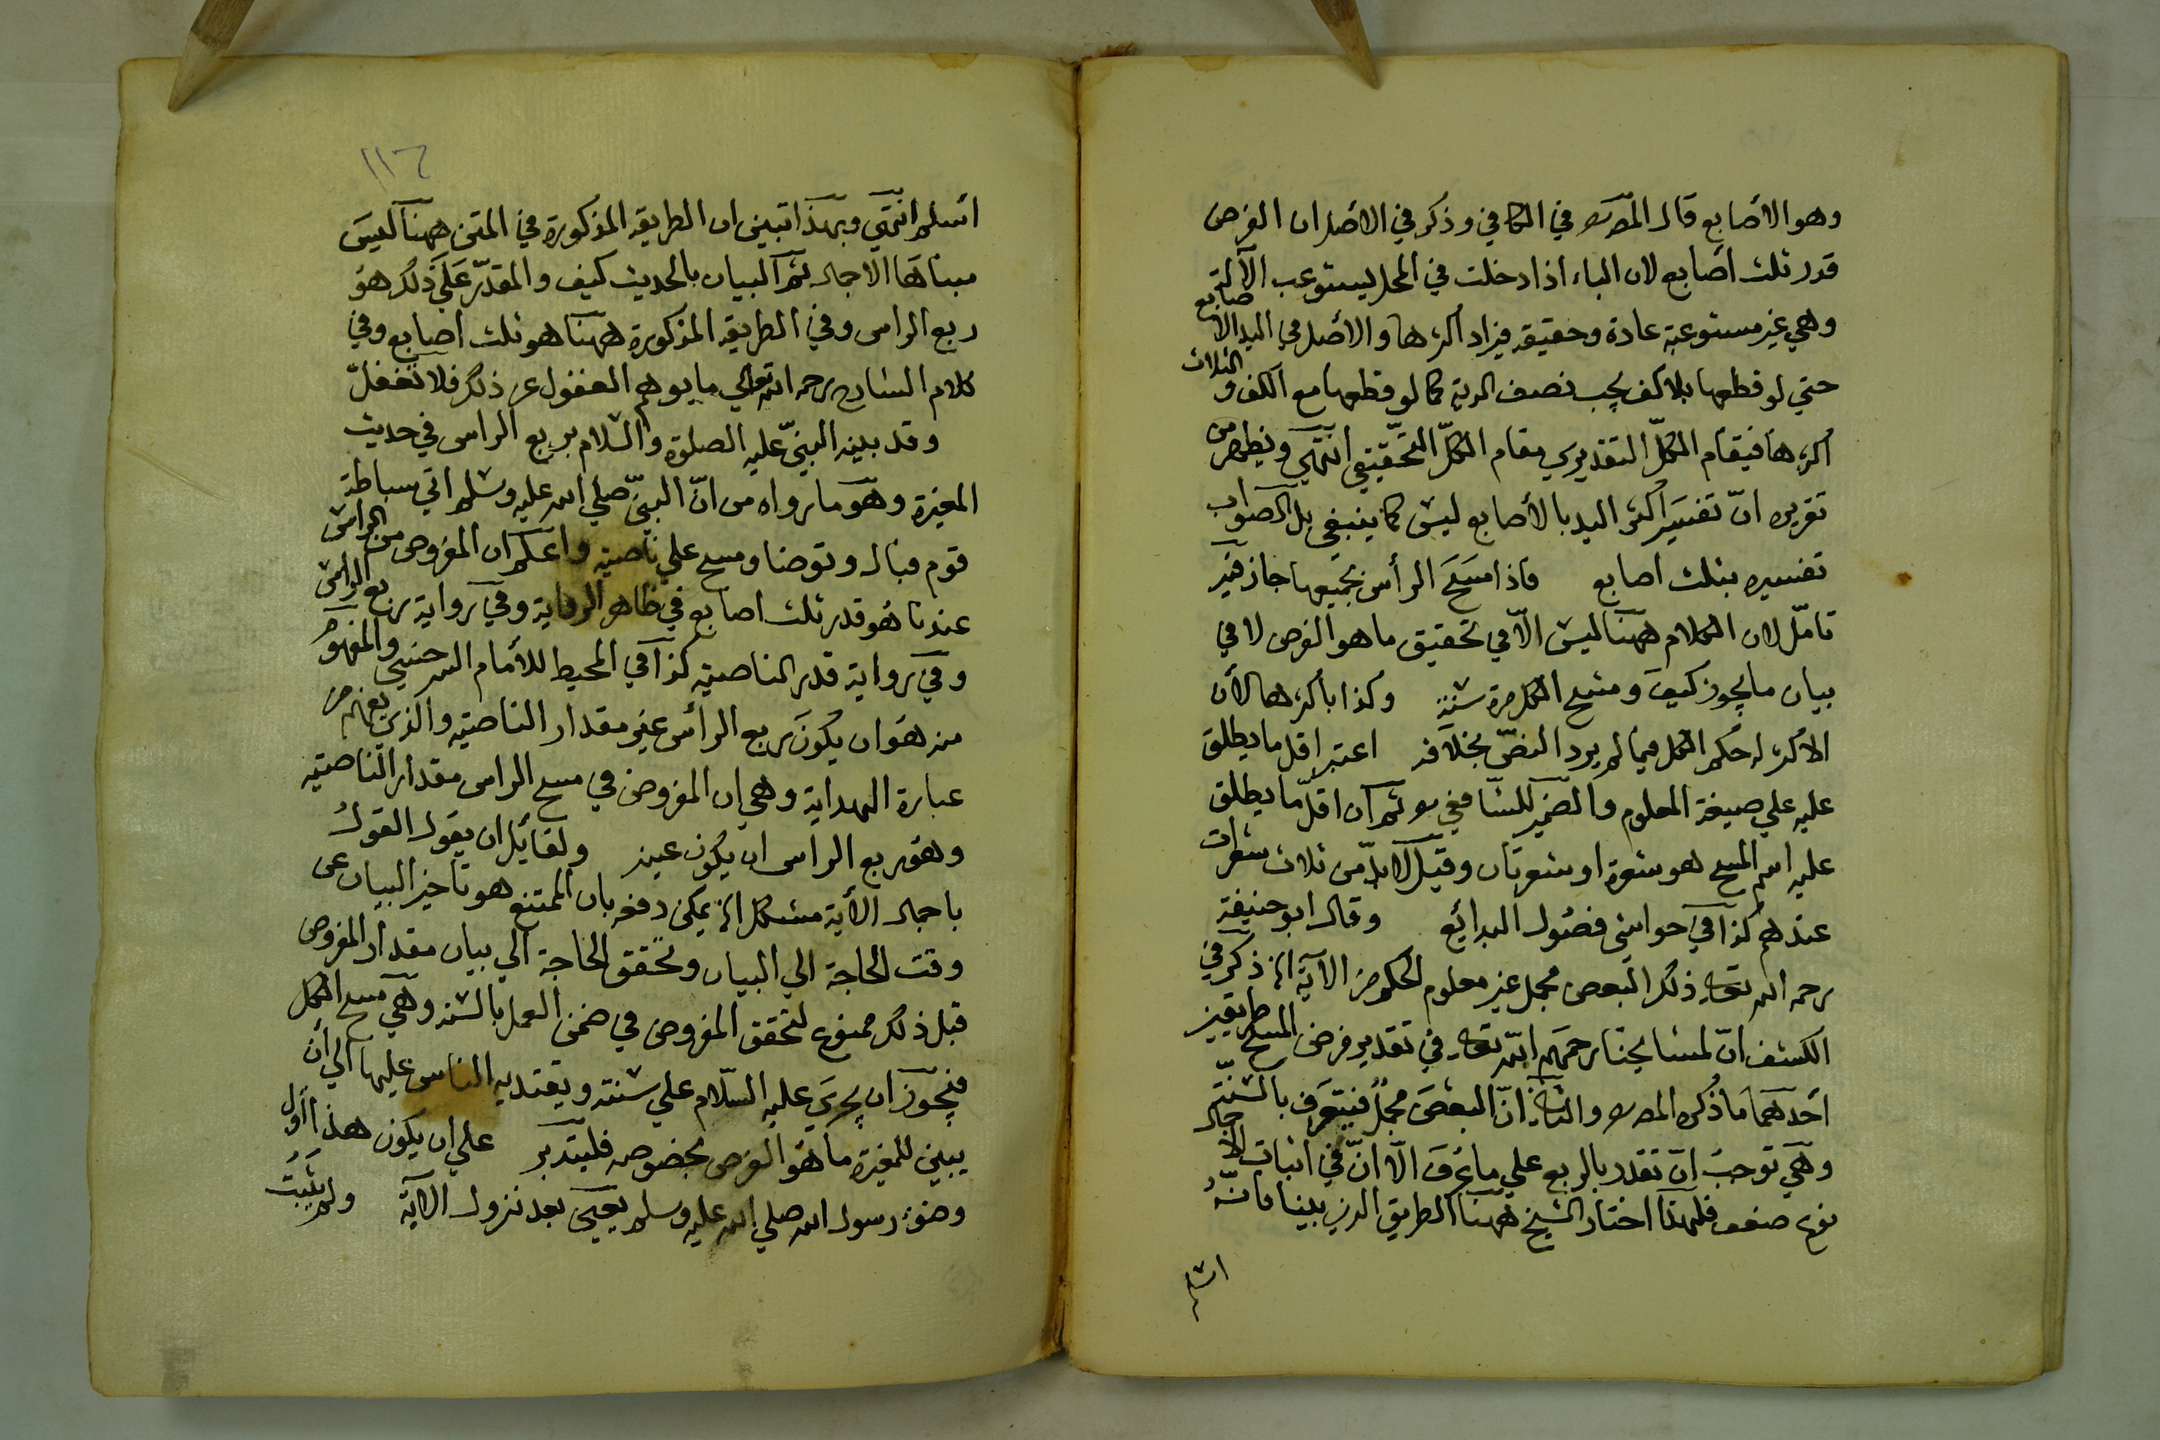 وهو الأصابع قال المص في الكافي وذكر في الاصل ان الفرض
قدر ثلث أصابع لان الباء اذا دخلت في المحل يستوعب الآلة
وهي غير مستوعبة عادة وحقيقة فيراد أكثرها والاصل في اليد الاصابع
حتي لو قطعها بلا كف يجب نصف الدية كما لو قطعها مع الكف والثلاث
أكثرها فيقام الكلّ التقديري مقام الكلّ التحقيقي انتهي ويظهر من
تقريره انّ تفسير أكثر اليد بالأصابع ليس كما ينبغي بل الصواب
تفسيره بثلث اصابع فاذا مسح الرأس بجميعها جاز فيه
تامّل لان الكلام ههنا ليس الّا في تحقيق ما هو الفرض لا في
بيان ما يجوز كيف ومسح الكل مرة سنة وكذا بأكثرها لأن
الأكثر له حكم الكل فيما لم يرد النصّ بخلافه اعتبر اقل ما يطلق
عليه علي صيغة المعلوم والضمير للشافعي ثم ان اقلّ ما يطلق
عليه اسم المسح هو شعرة او شعرتان وقيل لا بدّ من ثلاث شعرات
عندهم كذا في حواشي فصول البدائع وقال ابو حنيفة
رحمه الله تعه ذلك البعض مجمل غير معلوم الحكم من الآية الخ ذكر في
الكشف انّ لمشايخنا رحمهم الله تعه في تقدير فرض المسح طريقين
أحدهما ما ذكره المص والثاني انّ البعض مجمل فيتعرف بالسنة
وهي توجب ان تقدر بالربع علي ما عرف الّا انّ في اثبات الاجمال
نوع ضعف فلهذا اختار الشيخ ههنا الطريق الذي بينا فانّه
اسلم
١١٦
اسلم انتهي وبهذا تبين ان الطريقة المذكورة في المتن ههنا ليس
مبناها الاجمال ثم البيان بالحديث كيف والمقدّر علي ذلك هو
ربع الراس وفي الطريقة المذكورة ههنا هو ثلث اصابع وفي
كلام الشارح رحمه الله تعالي ما يوهم الغفول عن ذلك فلا تغفل
وقد بينه النبيّ عليه الصلوة والسلام بربع الراس في حديث
المغيرة وهو ما رواه من انّ النبيّ صلي الله عليه وسلم اتي سباطة
قوم فبال وتوضا ومسح علي ناصيته واعلم ان المفروض من الراس
عندنا هو قدر ثلث اصابع في ظاهر الرواية وفي رواية ربع الراس
وفي رواية قدر الناصية كذا في المحيط للأمام السرخسي والمفهوم
منه هو ان يكون ربع الرأس غير مقدار الناصية والذي يفهم من
عبارة الهداية وهي ان المفروض في مسح الراس مقدار الناصية
وهو ربع الراس ان يكون عينه ولقائل ان يقول القول
باجمال الأية مشكل الخ يمكن دفعه بان الممتنع هو تاخير البيان عن
وقت الحاجة الي البيان وتحقق الحاجة الي بيان مقدار المفروض
قبل ذلك ممنوع لتحقق المفروض في ضمن العمل بالسنة وهي مسح الكل
فيجوز ان يجري عليه السلام علي سنته ويقتديه الناس عليها الي أن
يبين للمغيرة ما هو الفرض بخصوصه فليتدبر علي ان يكون هذا اول
وضوء رسول الله صلي الله عليه وسلم يعني بعد نزول الاية ولم يثبت